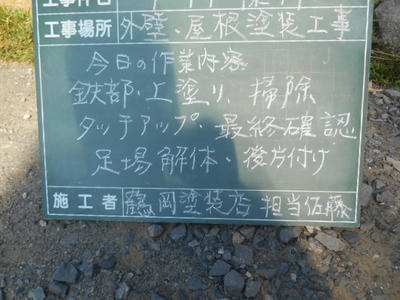 工事件名
工事場所 外壁、屋根塗装工事
今日の作業内容
鉄部、上塗り、掃除
タッチアップ・最終確認
足場解体・後方付け
施工者 鶴岡塗装店 担当佐藤